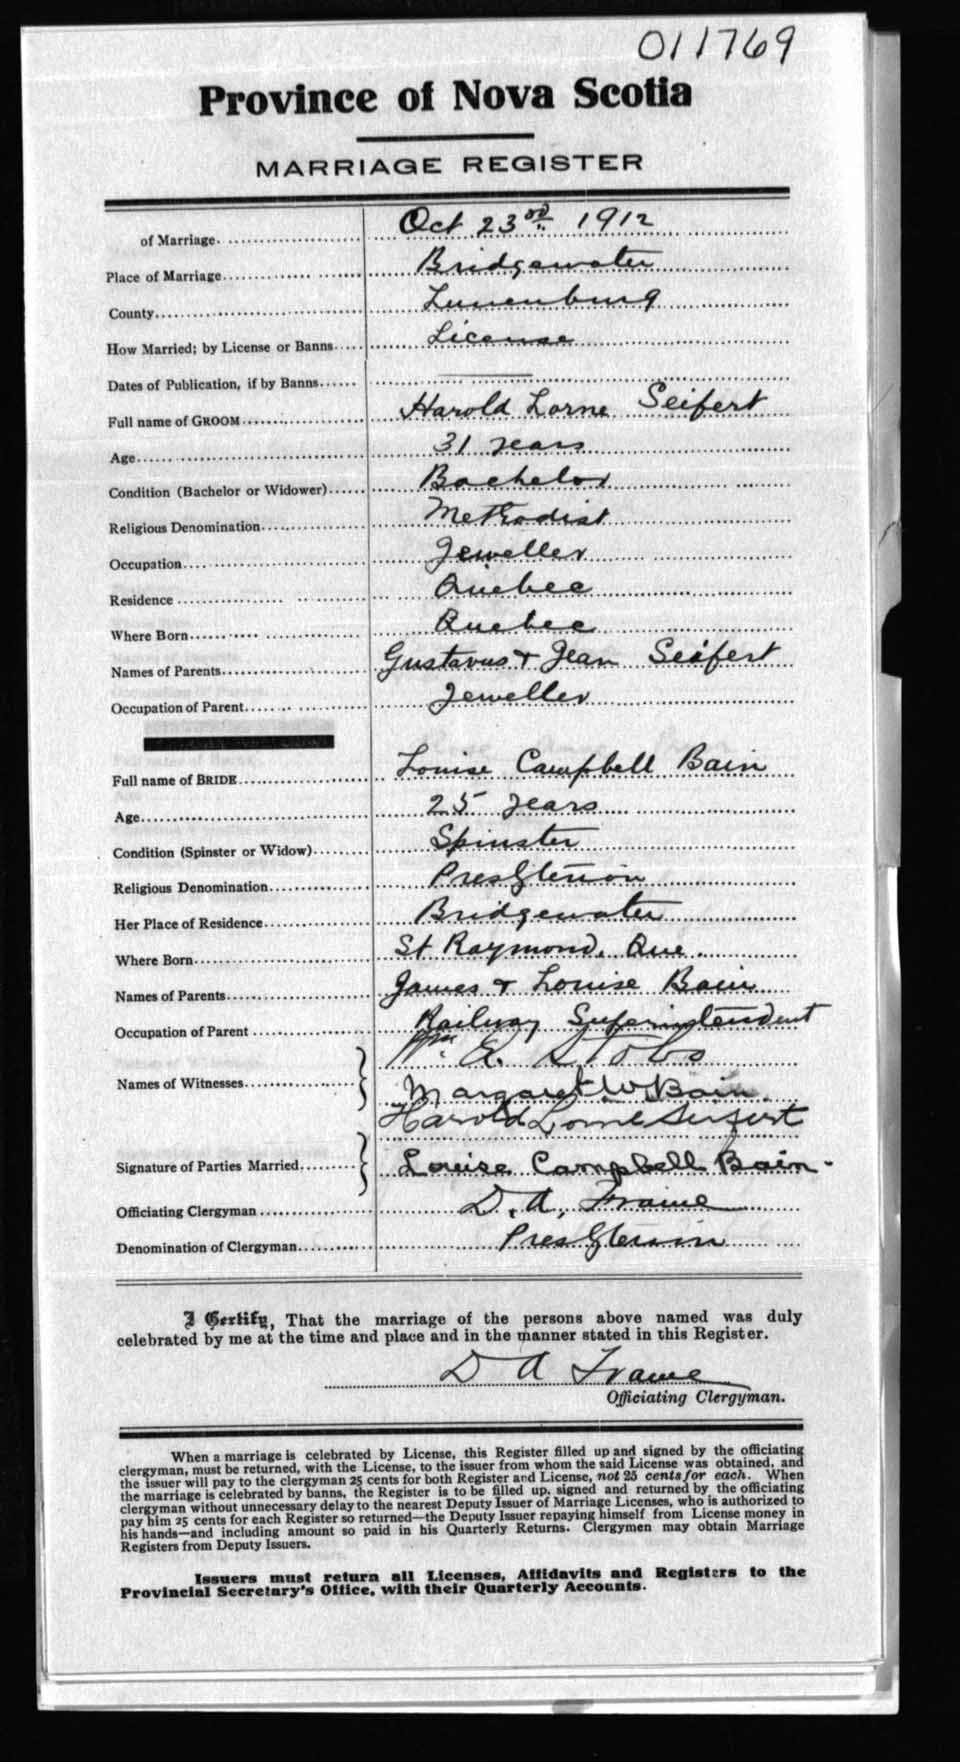 011769
Province of Nova Scotia
MARRIAGE REGISTER
of Marriage. Oct 23rd 1912
Place of Marriage Bridgewater
County Lunenburg
How Married; by License or Banns License
Dates of Publication, if by Banns
Full name of GROOM Harold Lorne Seifert
Age 31 years
Condition (Bachelor or Widower) Bachelor
Religious Denomination Methodist
Occupation Jeweller
Residence Quebec
Where Born Quebec
Names of Parents Gustavus & Jean Seifert
Occupation of Parent Jeweller
Full name of BRIDE Louise Campbell Bain
Age 25 years
Condition (Spinster or Widow) Spinster
Religious Denomination Presbyterian
Her Place of Residence Bridgewater
Where Born St Raymond, Que.
Names of Parents James & Louise Bain
Occupation of Parent Railway Superintendent
Names of Witnesses Wm. E. Stobs
Margaret W Bain.
Harold Lorne Seifert
Signature of Parties Married Louise Campbell Bain.
Officiating Clergyman D. A. Frame
Denomination of Clergyman Presbterian
I Certify, That the marriage of the persons above named was duly
celebrated by me at the time and place and in the manner stated in this Register.
D A Frame
Officiating Clergyman.
When a marriage is celebrated by License, this Register filled up and signed by the officiating
clergyman, must be returned, with the License, to the issuer from whom the said License was obtained, and
the issuer will pay to the clergyman 25 cents for both Register and License, not 25 cents for each. When
the marriage is celebrated by banns, the Register is to be filled up, signed and returned by the officiating
clergyman without unnecessary delay to the nearest Deputy Issuer of Marriage Licenses, who is authorized to
pay him 25 cents for each Register so returned—the Deputy Issuer repaying himself from License money in
his hands—and including amount so paid in his Quarterly Returns. Clergymen may obtain Marriage
Registers from Deputy Issuers.
Issuers must return all Licenses, Affidavits and Registers to the
Provincial Secretary's Office, with their Quarterly Accounts.